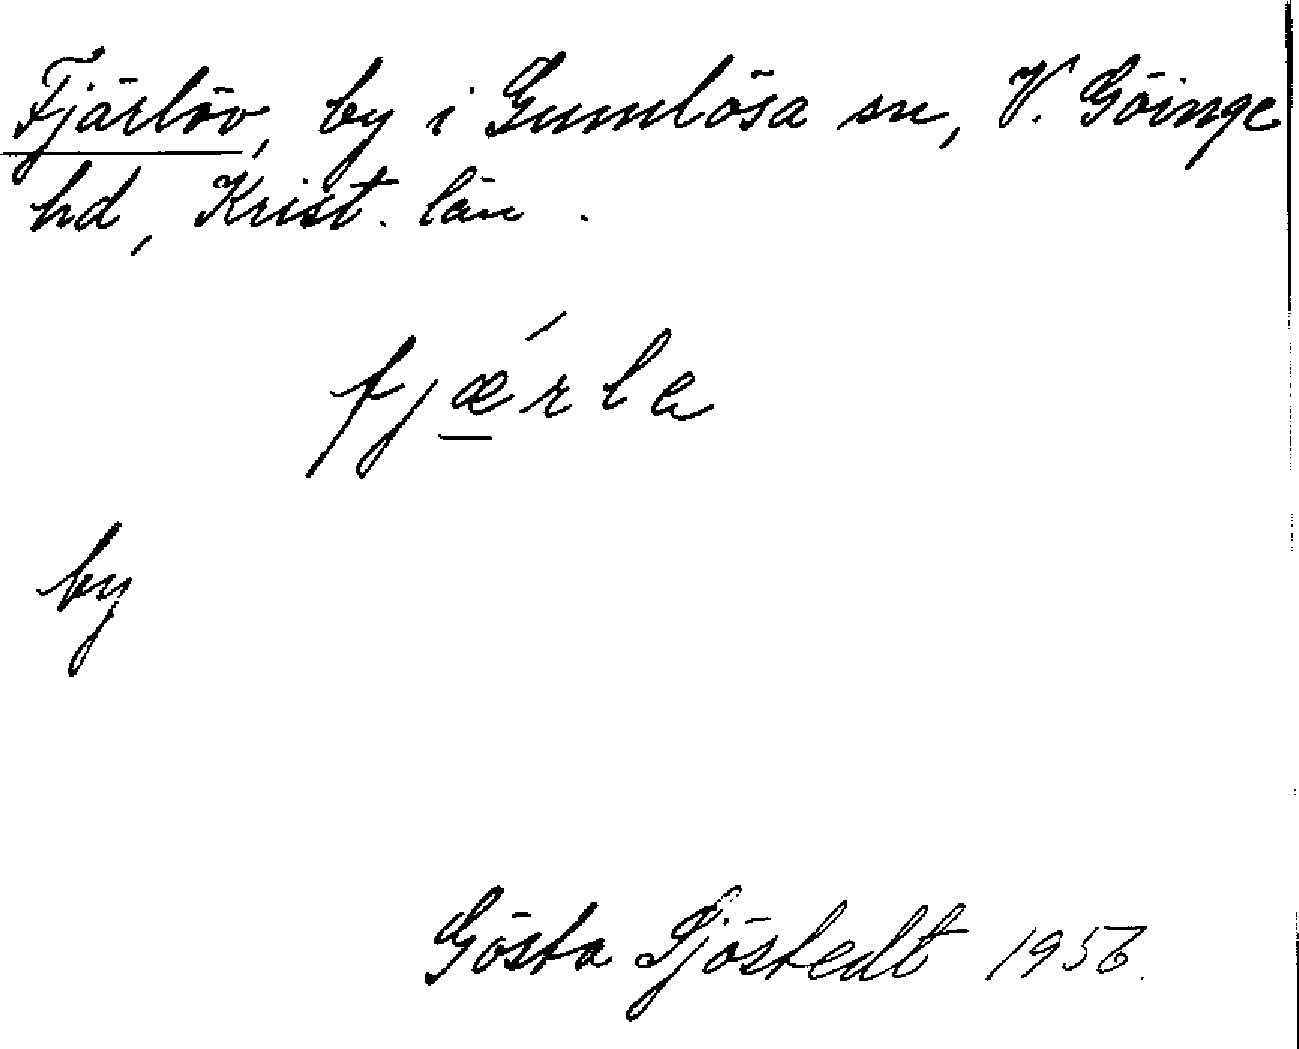 Fjärlöv, by i Gumlösa sn, V. Göinge
hd, Krist. län.
fjǽ̠rla
by
Gösta Sjöstedt 1956.